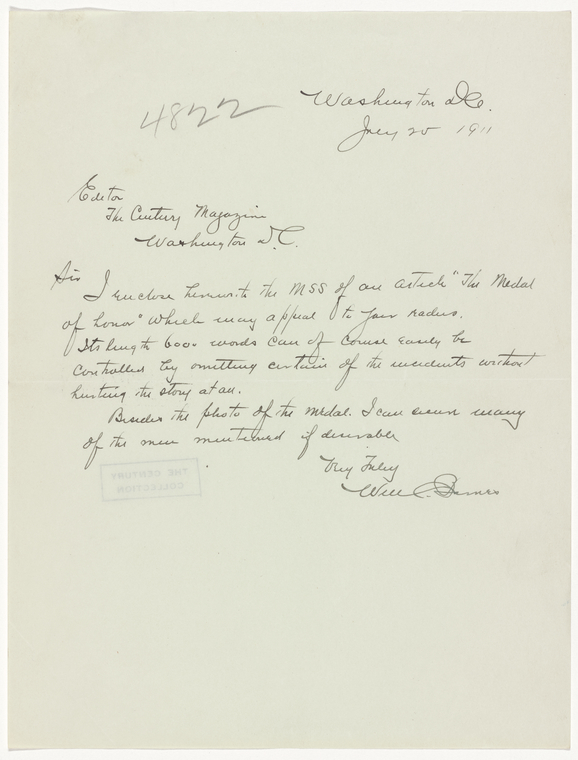 4822
Washington D.C.
July 20 1911
Editor
The Century Magazine
Washington D.C.
Sir
I enclose herewith the MSS of an article "The Medal
of honor" which may appeal to your readers.
Its length 6000 words can of course easily be
controlled by omitting certain of the incidents without
hurting the story at all.
Besides the photo of the medal. I can secure many
of the men mentioned if desirable
Very Truly
Will C. Barnes
THE CENTURY
COLLECTION